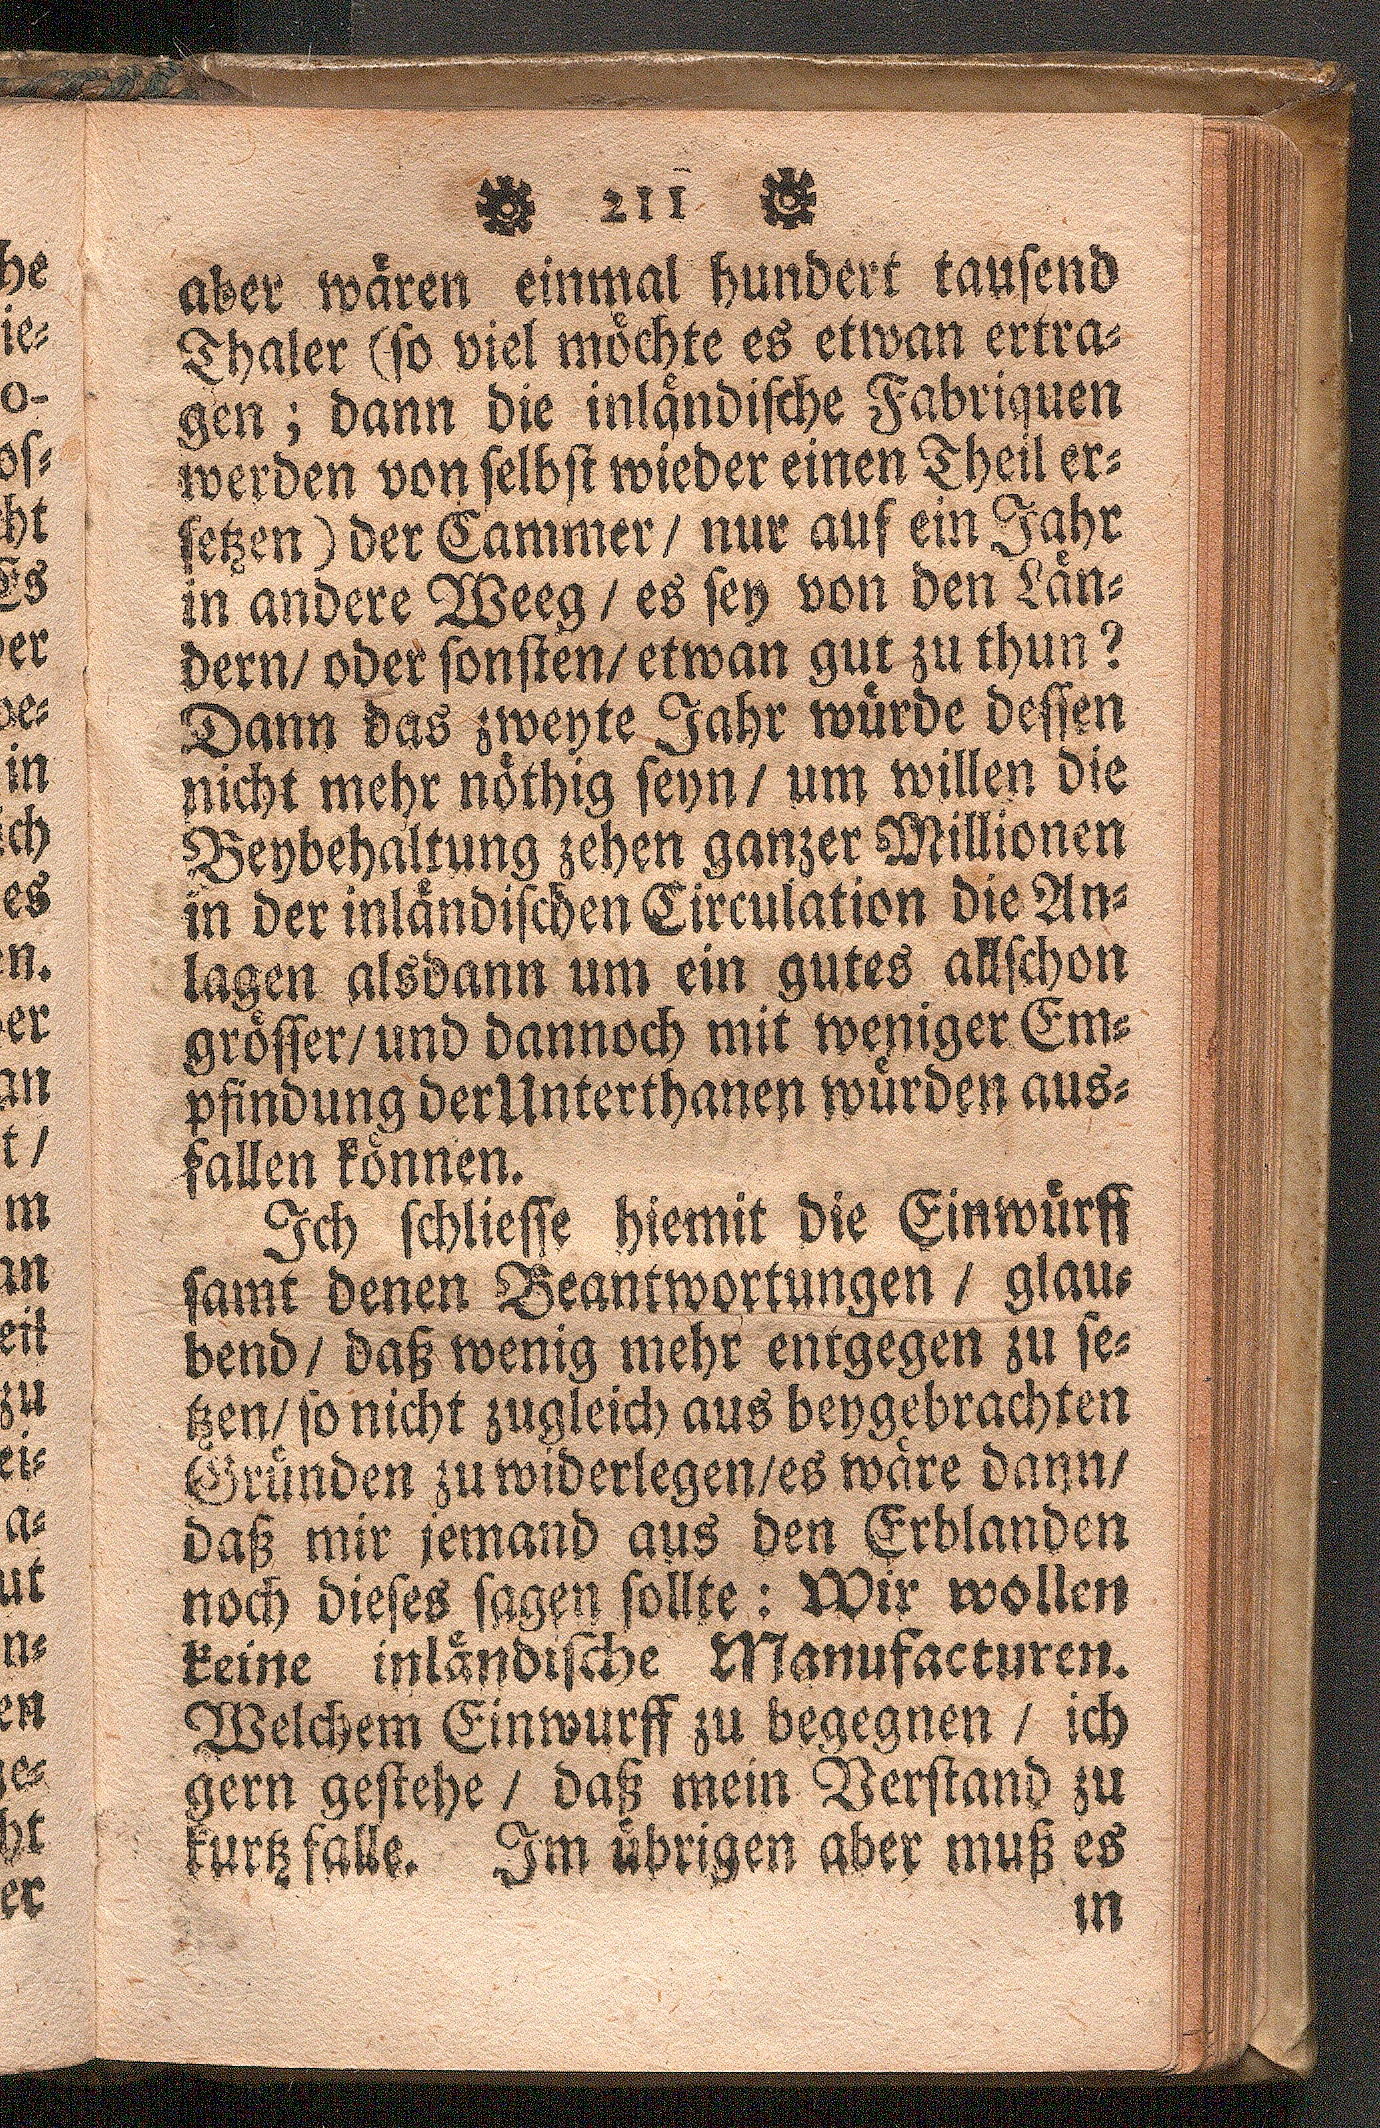 211
aber wären einmal hundert tausend
Thaler (so viel möchte es etwan ertra-
gen; dann die inländische Fabriquen
werden von selbst wieder einen Theil er-
setzen) der Cammer / nur auf ein Jahr
in andere Weeg / es sey von den Län-
dern / oder sonsten / etwan gut zu thun?
Dann das zweyte Jahr würde dessen
nicht mehr nöthig seyn / um willen die
Beybehaltung zehen ganzer Millionen
in der inländischen Circulation die An-
lagen alsdann um ein gutes allschon
grösser / und dannoch mit weniger Em-
pfindung der Unterthanen würden aus-
fallen können.
Ich schliesse hiemit die Einwürff
samt denen Beantwortungen / glau-
bend / daß wenig mehr entgegen zu se-
tzen / so nicht zugleich aus beygebrachten
Gründen zu widerlegen / es wäre dann /
daß mir jemand aus den Erblanden
noch dieses sagen sollte: Wir wollen
keine inländische Manufacturen.
Welchem Einwurff zu begegnen / ich
gern gestehe / daß mein Verstand zu
kurtz falle. Im übrigen aber muß es
in